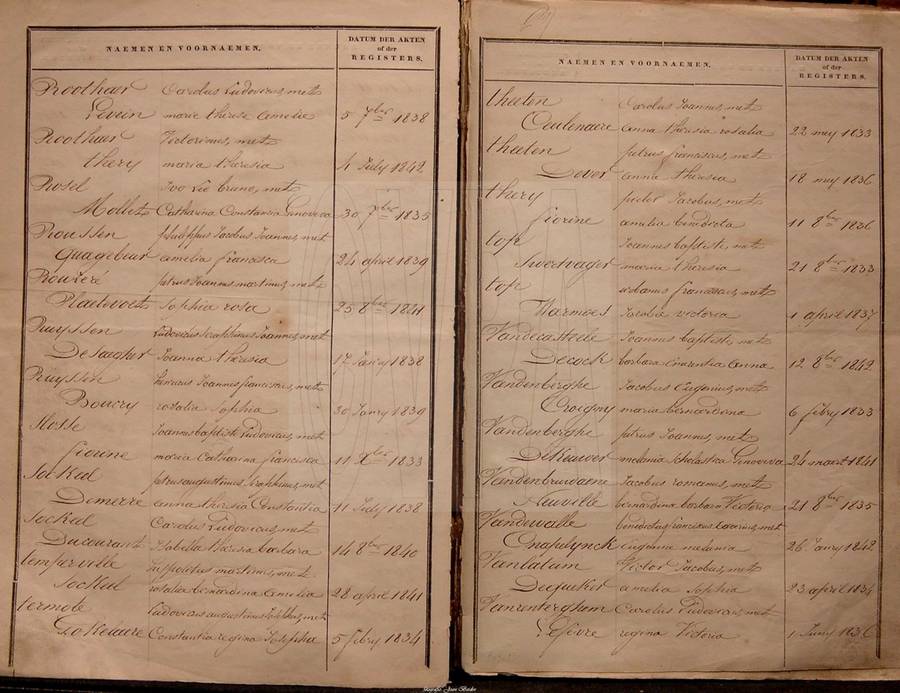 NAEMEN EN VOORNAEMEN.
DATUM DER AKTEN
of der
REGISTERS.
Roothaer Carolus Ludovicus, met
Levein marie thérèse amelie 5 7ber 1838
Roothaer Victorinus, met
thery maria theresia 4 July 1842
Rosel Ivo Léo bruno, met
Mollet Catharina Constantia Genoveva 30 7ber 1835
Roussen philippus Jacobus Joannes, met
Quaghebeur amelia francisca 24 april 1839
Rouzeré petrus Joannes martinus, met
Plaetevoet Sophia rosa 25 8ber 1841
Ruyssen Ludovicus Seraphinus Joannes, met
De Saegher Joanna theresia 17 Janry 1838
Ruyssen henricus Joannes franciscus, met
Boucry rosalia Sophia 30 Janry 1839
Joannes baptiste Ludovicus, met
maria Catharina francisca 11 Xber 1833
petrus augustinus Seraphinus, met
Demerre anna theresia Constantia 11 July 1838
Sockeel Carolus Ludovicus, met
Ducourant Isabella theresia barbara 14 8ber 1840
temperville hippolitus martinus, met
Sockeel rosalia bernardina amelia 28 april 1841
termote Ludovicus augustinus Josephus, met
Constantia regina Josepha 5 febry 1834
NAEMEN EN VOORNAEMEN.
DATUM DER AKTEN
of der
REGISTERS.
theeten Carolus Joannes, met
Ceulenaere anna theresia rosalia 22 mey 1833
theeten petrus franciscus, met
Dever anna theresia 18 mey 1836
thery pieter Jacobus, met
fiorine amelia benedicta 11 8ber 1836
top Joannes baptiste, met
Swertvaeger maria theresia 21 8ber 1833
top urbanus franciscus, met
Warmoes Jacoba victoria 1 april 1837
Vandecasteele Joannes baptiste, met
Decock barbara Constantia anna 12 8ber 1842
Vandenberghe Jacobus Eugenius, met
Croigny maria bernardina 6 febry 1833
Vandenberghe petrus Joannes, met
Dekeuwer melania Scholastica Genoveva 24 maart 1841
Vandenbruwaene Jacobus romanus, met
Neuville bernardina barbara Victoria 21 8ber 1835
Vandewalle benedictus franciscus Xaverius, met
Cnapelynck eugenia melania 26 Janry 1842
Vantatum Victor Jacobus, met
Decqueker amelia Sophia 23 april 1834
Vanrenterghem Carolus Ludovicus, met
Lefevre regina Victoria 1 Juny 1836